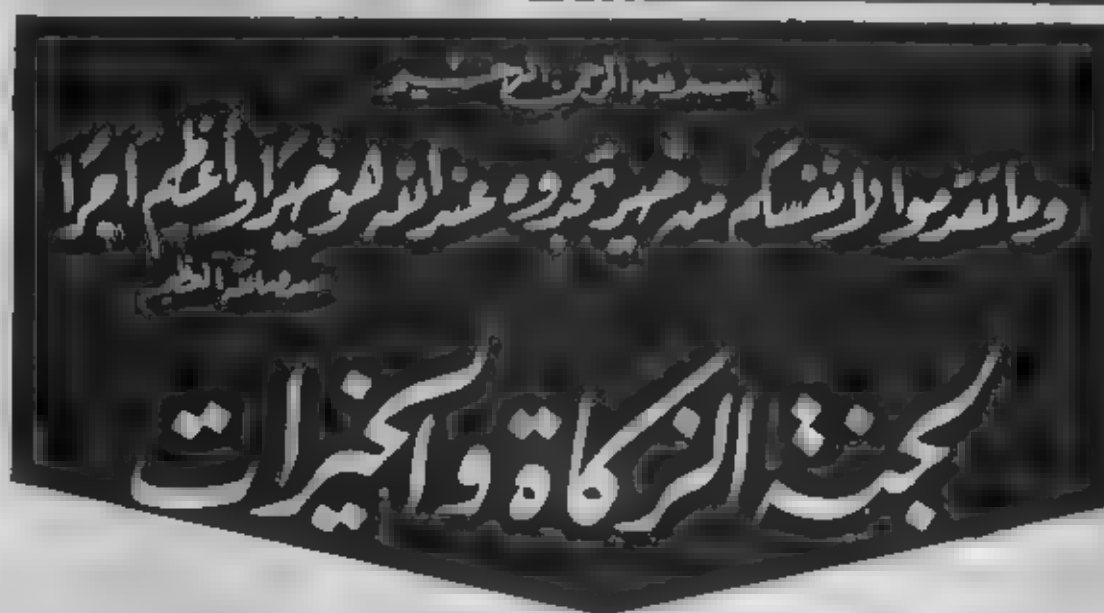 بسم الله الرحمن الرحيم
وما تقدموا لأنفسكم من خير تجدوه عند الله هو خيرًا وأعظم أجرًا
صدق الله العظيم
لجنة الزكاة والخيرات